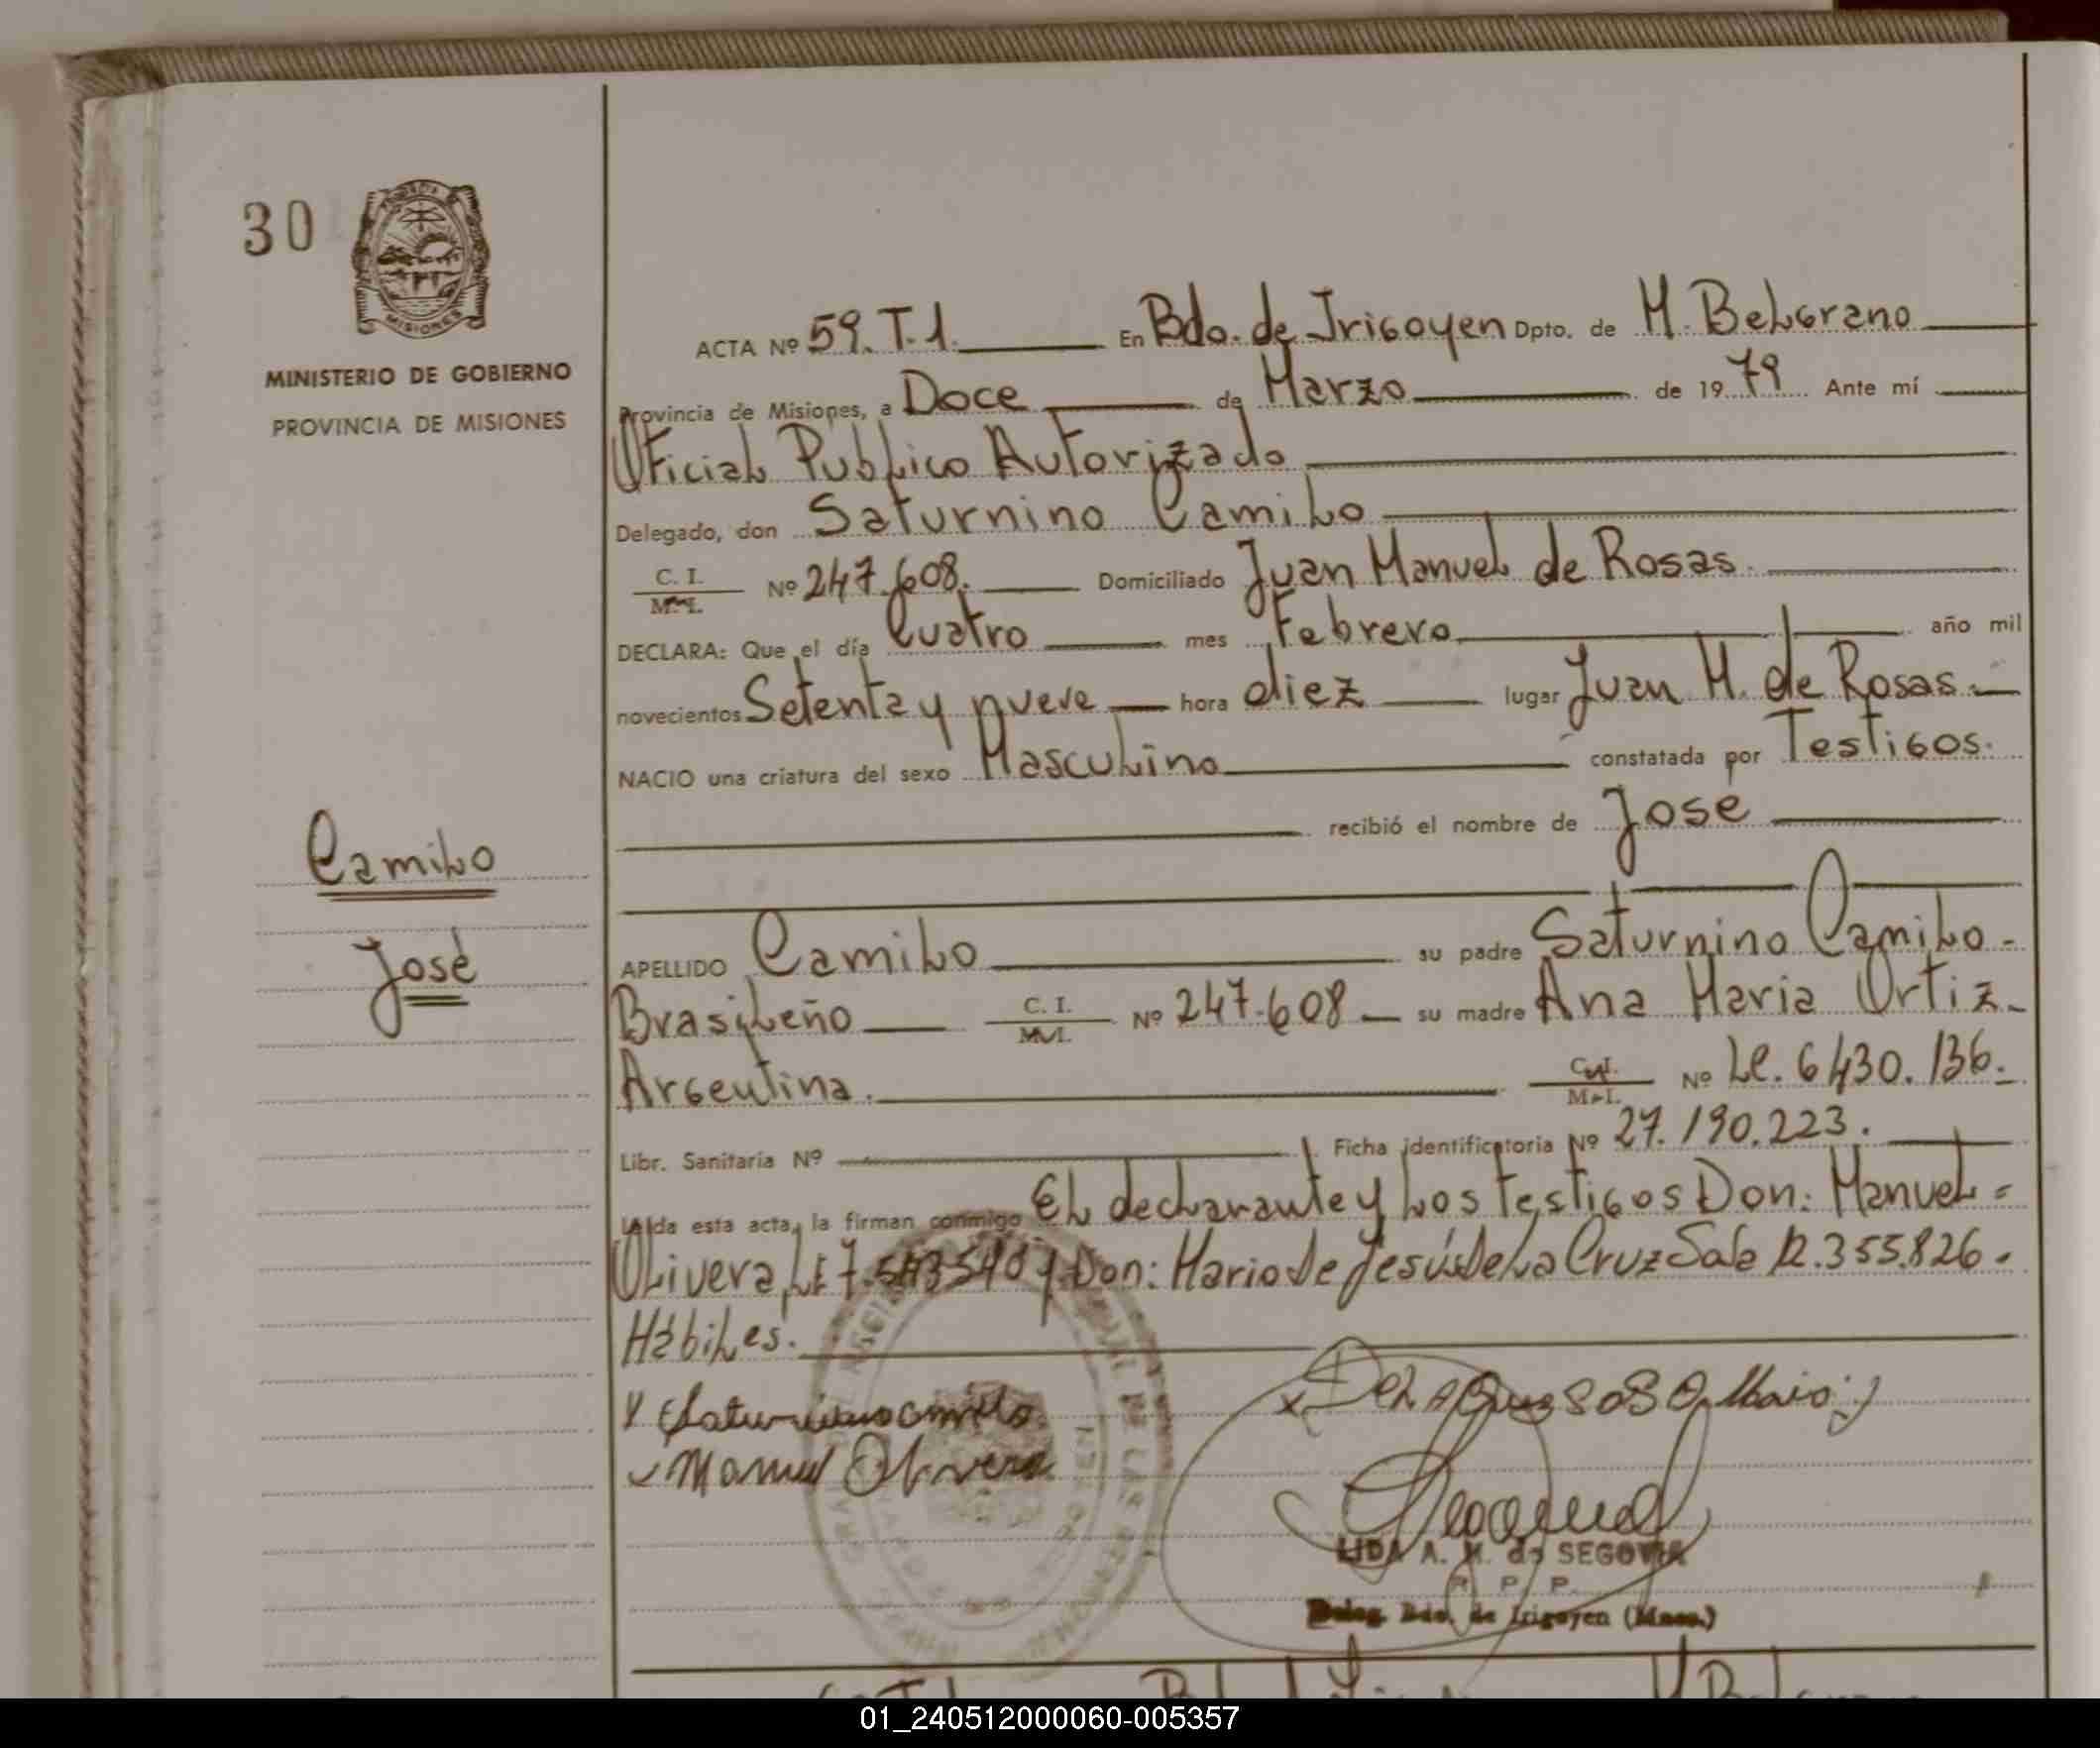 30
MISIONES
MINISTERIO DE GOBIERNO
PROVINCIA DE MISIONES
Camilo
José
ACTA Nº 59. T. 1. En Bdo. de Irigoyen Dpto. de M. Belgrano
Provincia de Misiones, a Doce de Marzo de 1979 Ante mí
Oficial Publico Autorizado
Delegado, don Saturnino Camilo
C. I. M. I. Nº 247.608. Domiciliado Juan Manuel de Rosas.
DECLARA: Que el día Cuatro mes Febrero año mil
novecientos Setenta y nueve hora diez lugar Juan M. de Rosas.
NACIO una criatura del sexo Masculino constatada por Testigos.
recibió el nombre de José
APELLIDO Camilo su padre Saturnino Camilo
Brasileño C. I. M. I. Nº 247.608 su madre Ana Maria Ortiz
Argentina. C. I. M. I. Nº Lc. 6430.136.
Libr. Sanitaria Nº Ficha identificatoria Nº 27.190.223.
Leída esta acta, la firman conmigo El declarante y los testigos Don: Manuel
Olivera, LE 7.543540 y Don: Mario De Jesús De La Cruz Sosa 12.355.826.
Hábiles.
Saturnino Camilo
Manuel Olivera
LIDA A. M. de SEGOVIA
Deleg. Bdo. de Irigoyen (Mnes.)
01_240512000060-005357